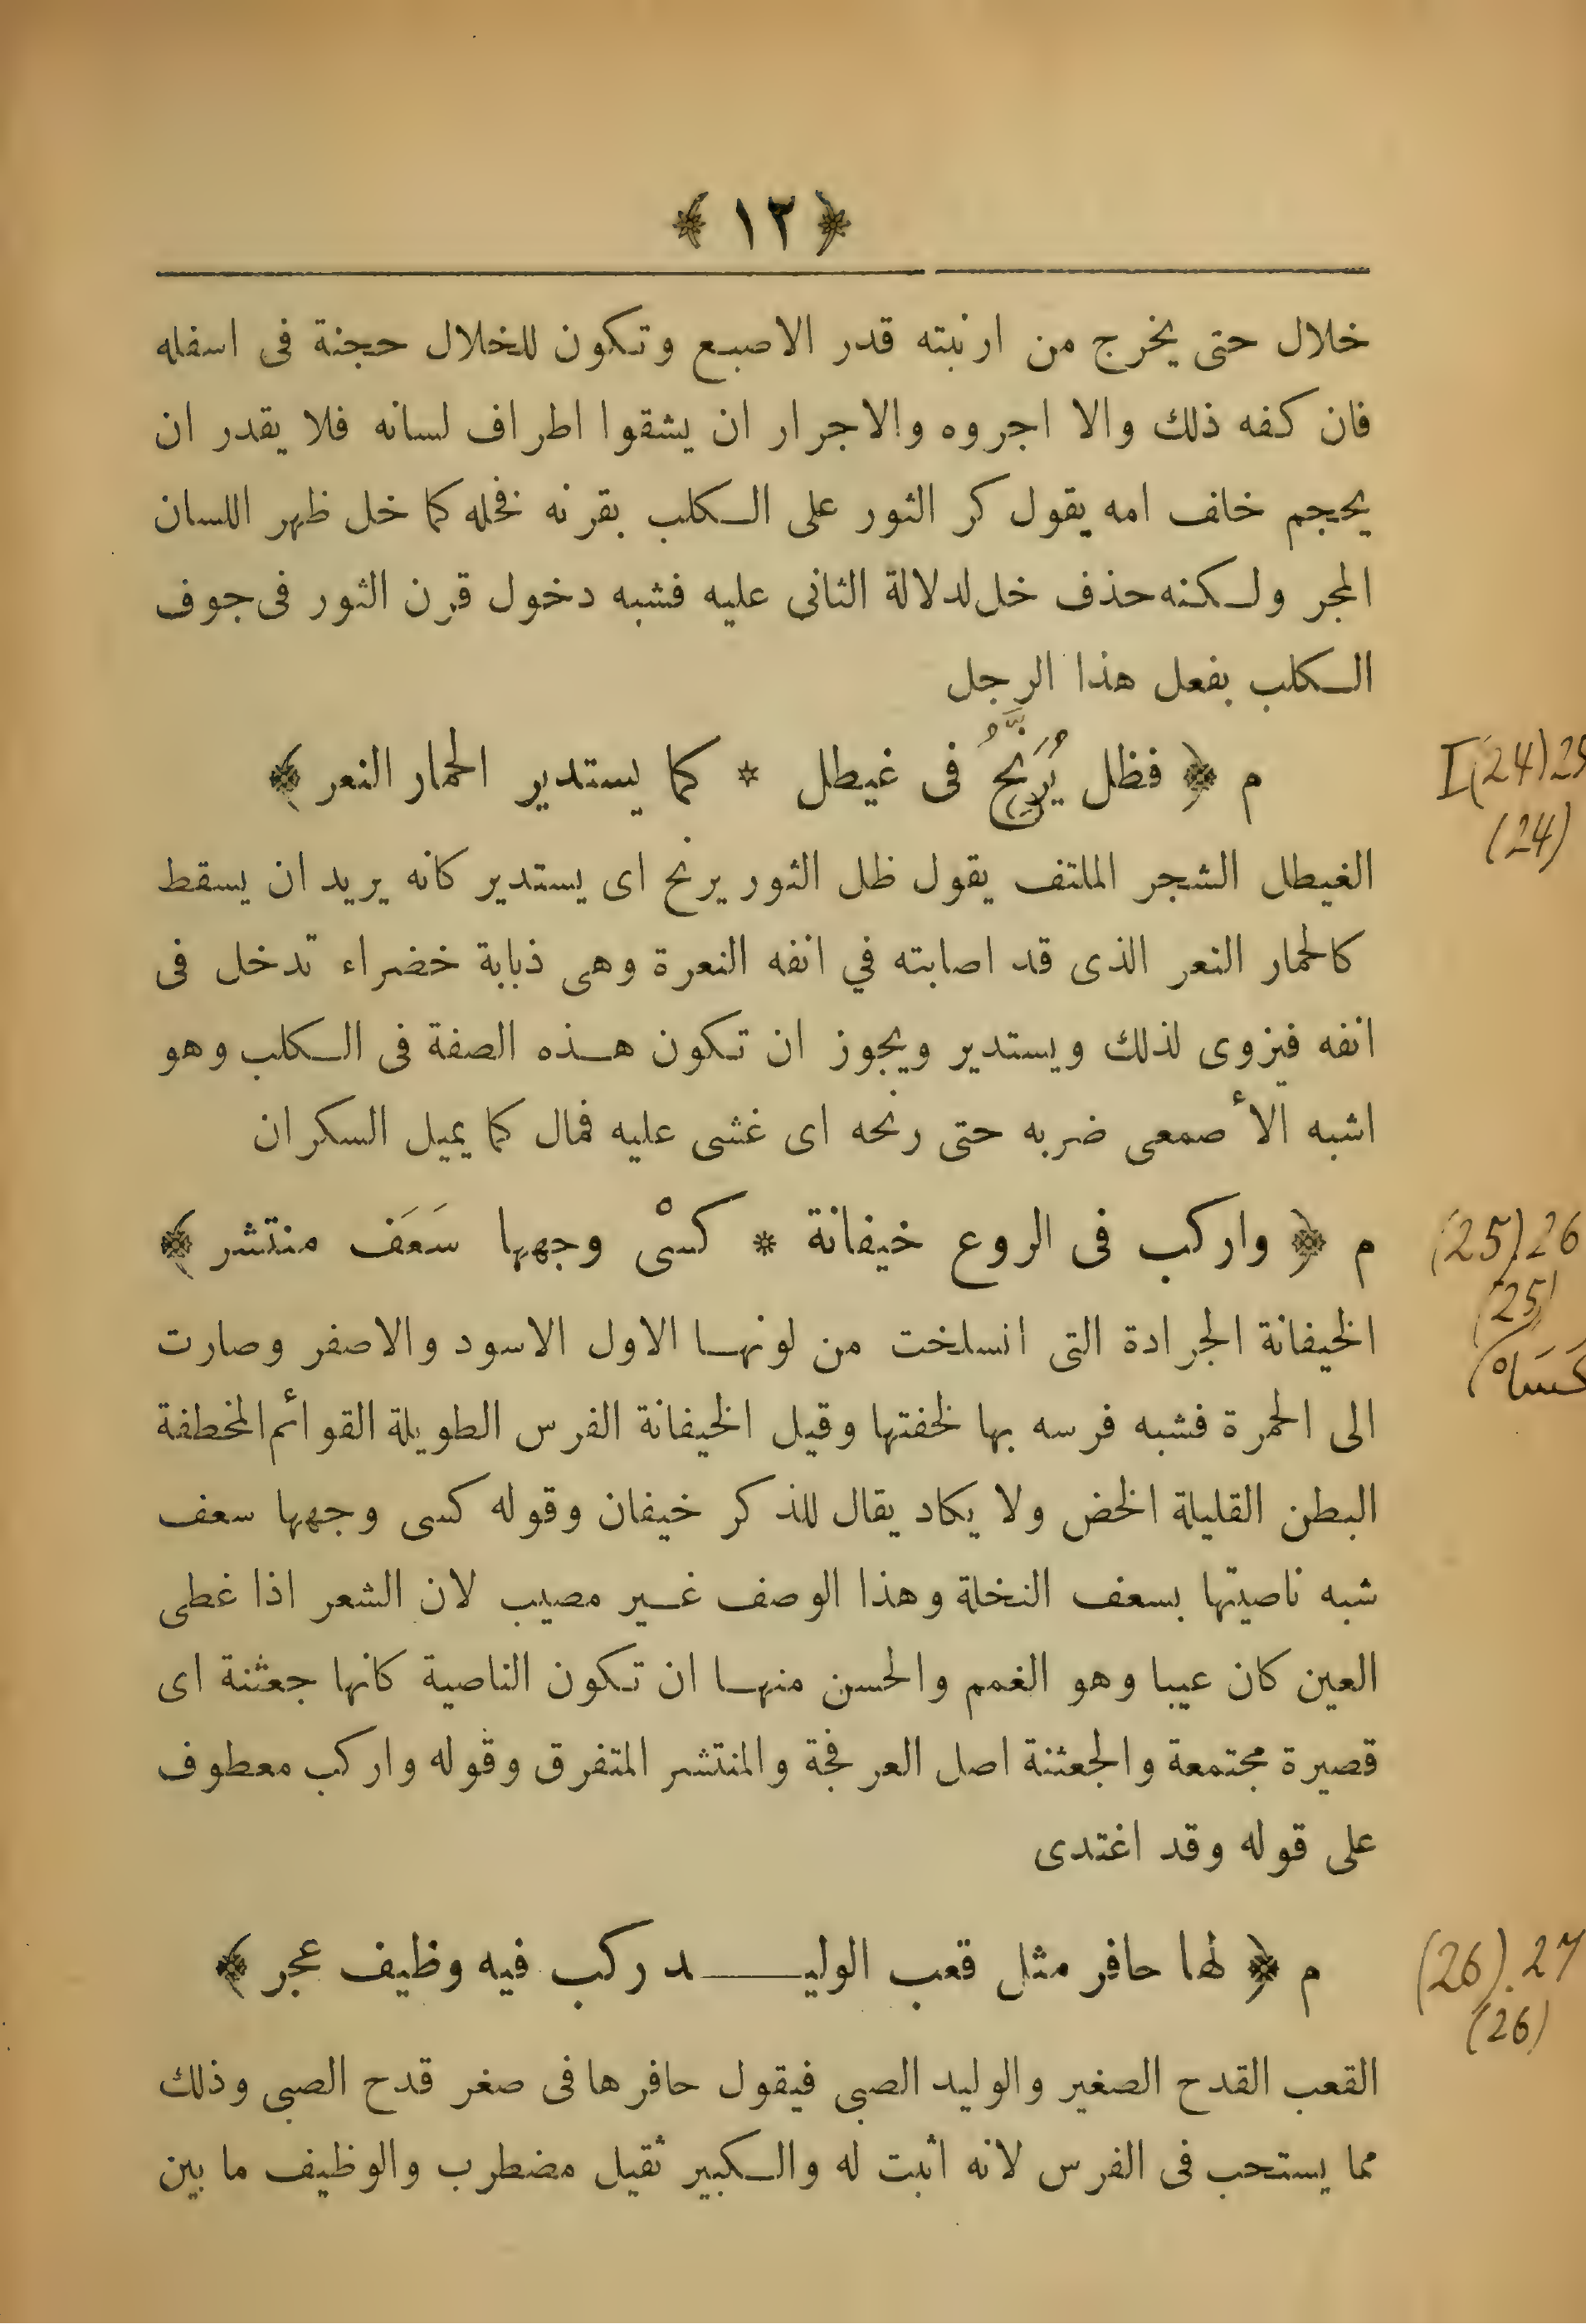 ﴿ ١٢ ﴾
خلال حتى يخرج من ارنبته قدر الاصبع وتكون للخلال حجنة فى اسفله
فان كفه ذلك والا اجروه والاجرار ان يشقوا اطراف لسانه فلا يقدر ان
يحجم خلف امه يقول كر الثور على الكلب بقرنه فخله كما خل ظهر اللسان
المجر ولكنه حذف خل لدلالة الثانى عليه فشبه دخول قرن الثور فى جوف
الكلب بفعل هذا الرجل
م ﴿ فظل يُرَنِّحُ فى غيطل * كما يستدير الحمار النعر ﴾
I(24)25
(24)
الغيطل الشجر الملتف يقول ظل الثور يرنح اى يستدير كانه يريد ان يسقط
كالحمار النعر الذى قد اصابته في انفه النعرة وهى ذبابة خضراء تدخل فى
انفه فيزوى لذلك ويستدير ويجوز ان تكون هذه الصفة فى الكلب وهو
اشبه الأصمعى ضربه حتى رنحه اى غشى عليه فمال كما يميل السكران
م ﴿ واركب فى الروع خيفانة * كسْى وجهها سَعَف منتشر ﴾
(25).26
(25)
الخيفانة الجرادة التى انسلخت من لونها الاول الاسود والاصفر وصارت
الى الحمرة فشبه فرسه بها لخفتها وقيل الخيفانة الفرس الطويلة القوائم المخطفة
البطن القليلة الخض ولا يكاد يقال للذكر خيفان وقوله كسى وجهها سعف
شبه ناصيتها بسعف النخلة وهذا الوصف غير مصيب لان الشعر اذا غطى
العين كان عيبا وهو الغمم والحسن منها ان تكون الناصية كانها جعثنة اى
قصيرة مجتمعة والجعثنة اصل العرفجة والمنتشر المتفرق وقوله واركب معطوف
على قوله وقد اغتدى
م ﴿ لها حافر مثل قعب الوليـــد ركب فيه وظيف عجر ﴾
(26).27
(26)
القعب القدح الصغير والوليد الصبى فيقول حافرها فى صغر قدح الصبى وذلك
مما يستحب فى الفرس لانه اثبت له والكبير ثقيل مضطرب والوظيف ما بين